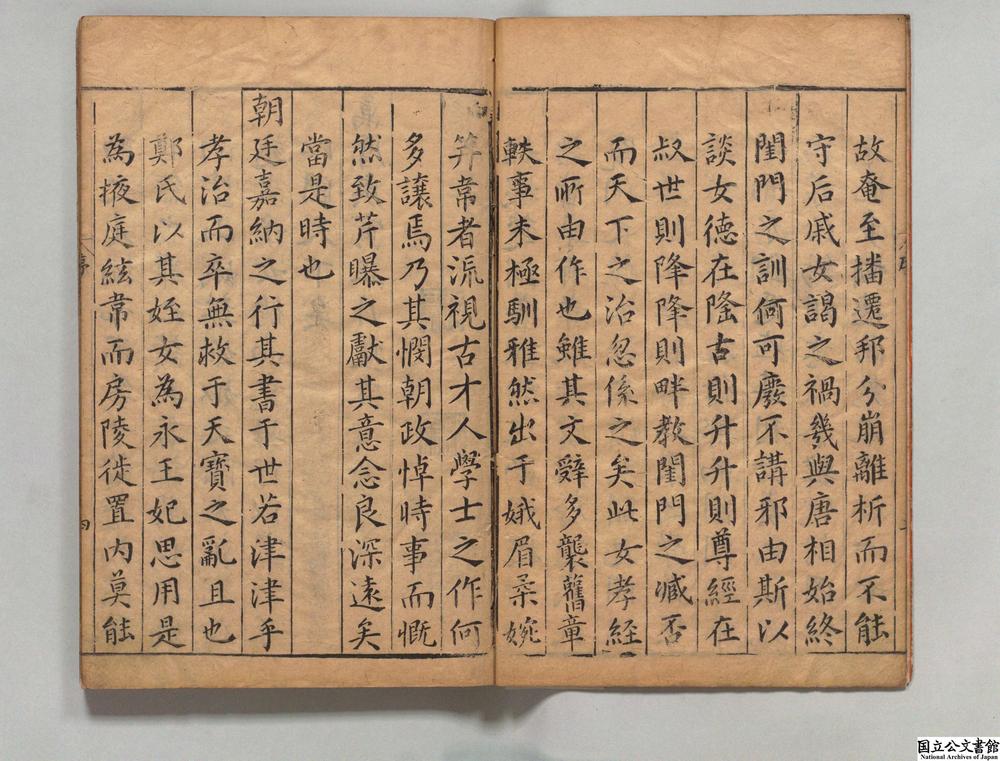 故奄至播遷邦分崩離析而不能
守后戚女謁之禍幾與唐相始終
閨門之訓何可廢不講邪由斯以
談女德在隆古則升升則尊經在
叔世則降降則畔教閨門之臧否
而天下之治忽係之矣此女孝經
之所由作也雖其文辭多襲舊章
軼事未極馴雅然出于娥眉柔婉
笄常者流視古才人學士之作何
多讓焉乃其憫朝政悼時事而慨
然致芹曝之獻其意念良深遠矣
當是時也
朝廷嘉納之行其書于世若津津乎
孝治而卒無救于天寶之亂且也
鄭氏以其姪女為永王妃思用是
為掖庭絃常而房陵徙置內莫能
序
四
国立公文書館
National Archives of Japan